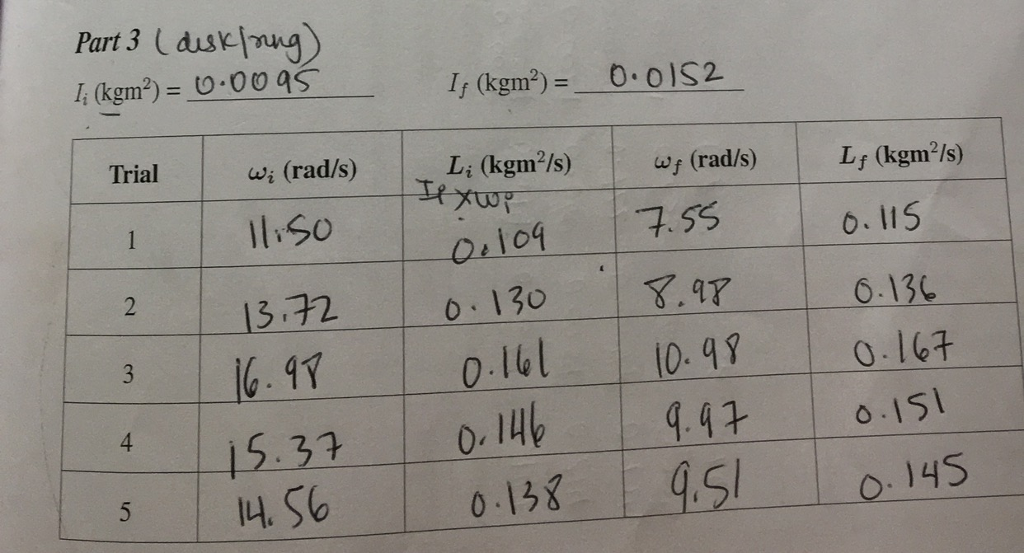 Part 3 (disk/ring)
Iᵢ (kgm²) = 0.0095 I_f (kgm²) = 0.0152
Trial ωᵢ (rad/s) Lᵢ (kgm²/s) ω_f (rad/s) L_f (kgm²/s)
1 11.50 0.109 7.55 0.115
2 13.72 0.130 8.98 0.136
3 16.98 0.161 10.98 0.167
4 15.37 0.146 9.97 0.151
5 14.56 0.138 9.51 0.145